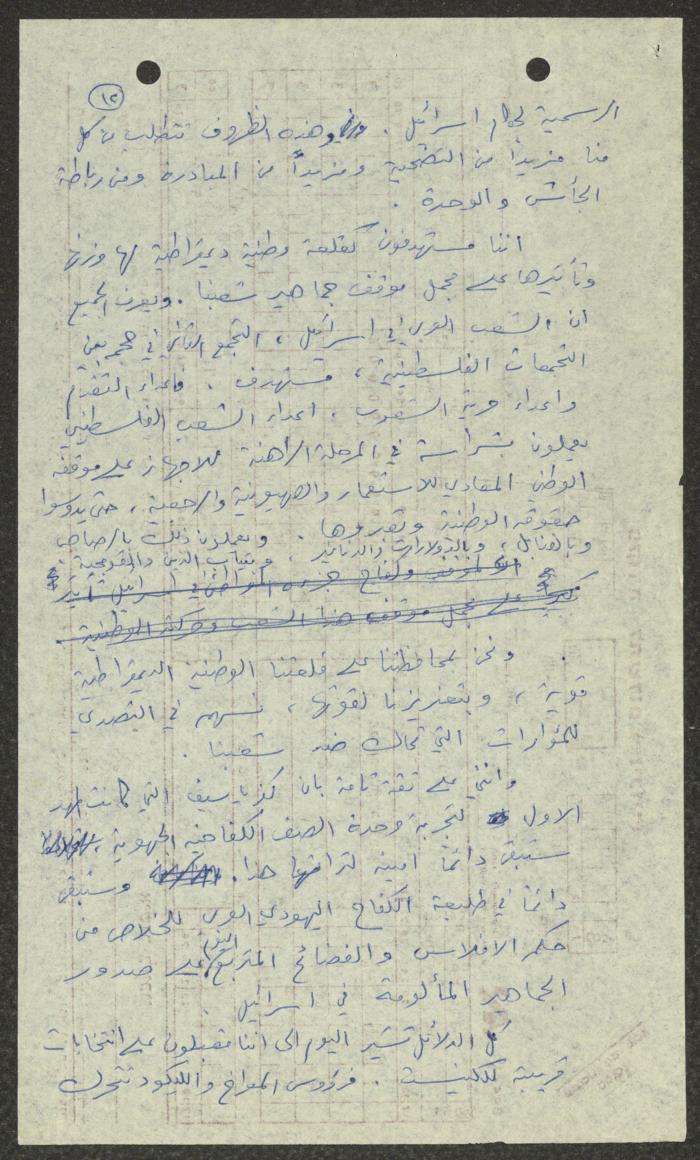 ١٢
الرسمية لحكام اسرائيل . وهذه الظروف تتطلب من كل
منا مزيداً من التضحية ومزيداً من المبادرة ومن رباطة
الجأش والوحدة .
اننا مستهدفون كقلعة وطنية ديمقراطية لها وزنها
وتأثيرها على مجمل موقف جماهير شعبنا . ويعرف الجميع
ان الشعب العربي في اسرائيل ، التجمع الثاني في حجمه بين
التجمعات الفلسطينية ، مستهدف . فاعداء التقدم
واعداء حرية الشعوب ، اعداء الشعب الفلسطيني
يعملون بشراسة في المرحلة الراهنة للاجهاز على موقفه
الوطني المعادي للاستعمار والصهيونية والرجعية ، حتى يدوسوا
حقوقه الوطنية . ويعملون ذلك بالرصاص
وبالقنابل ، وبالدولارات والدنانير
على مجمل موقف هذا الشعب وحركته الوطنية
ونحن بمحافظتنا على قلعتنا الوطنية الديمقراطية
قوية ، وبتعزيزنا لقوتها ، نسهم في التصدي
للمؤامرات التي تحاك ضد شعبنا .
وانني على ثقة تامة بان كفرياسيف التي كانت المهد
الاول لتجربة وحدة الصف الكفاحية الجبهوية ،
ستبقى دائماً امينة لتراثها هذا . وستبقى
دائماً في طليعة الكفاح اليهودي العربي للخلاص من
حكم الافلاس والفضائح المتربع على صدور
الجماهير المألومة في اسرائيل .
كل الدلائل تشير اليوم الى اننا مقبلون على انتخابات
قريبة للكنيست . فرؤوس المعراخ والليكود تتحرك